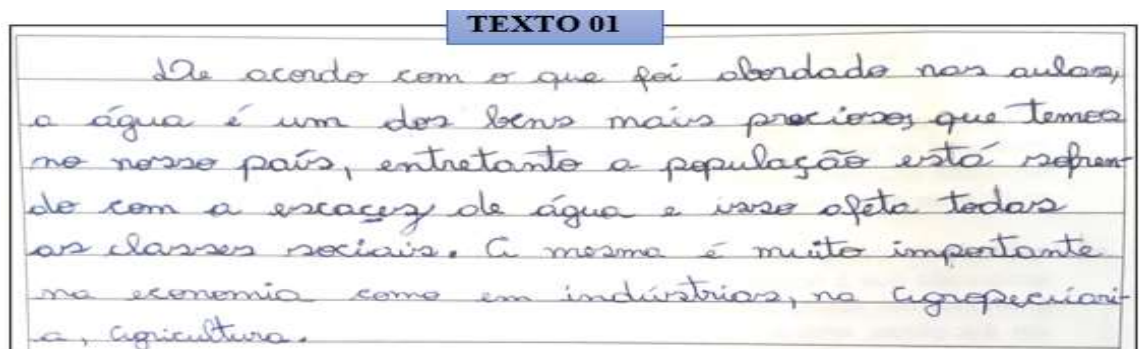 TEXTO 01
De acordo com o que foi abordado nas aulas,
a água é um dos bens mais preciosos que temos
no nosso país, entretanto a população está sofren-
do com a escaçez de água e isso afeta todas
as classes sociais. A mesma é muito importante
na economia como em indústrias, na agropecuári-
a, agricultura.